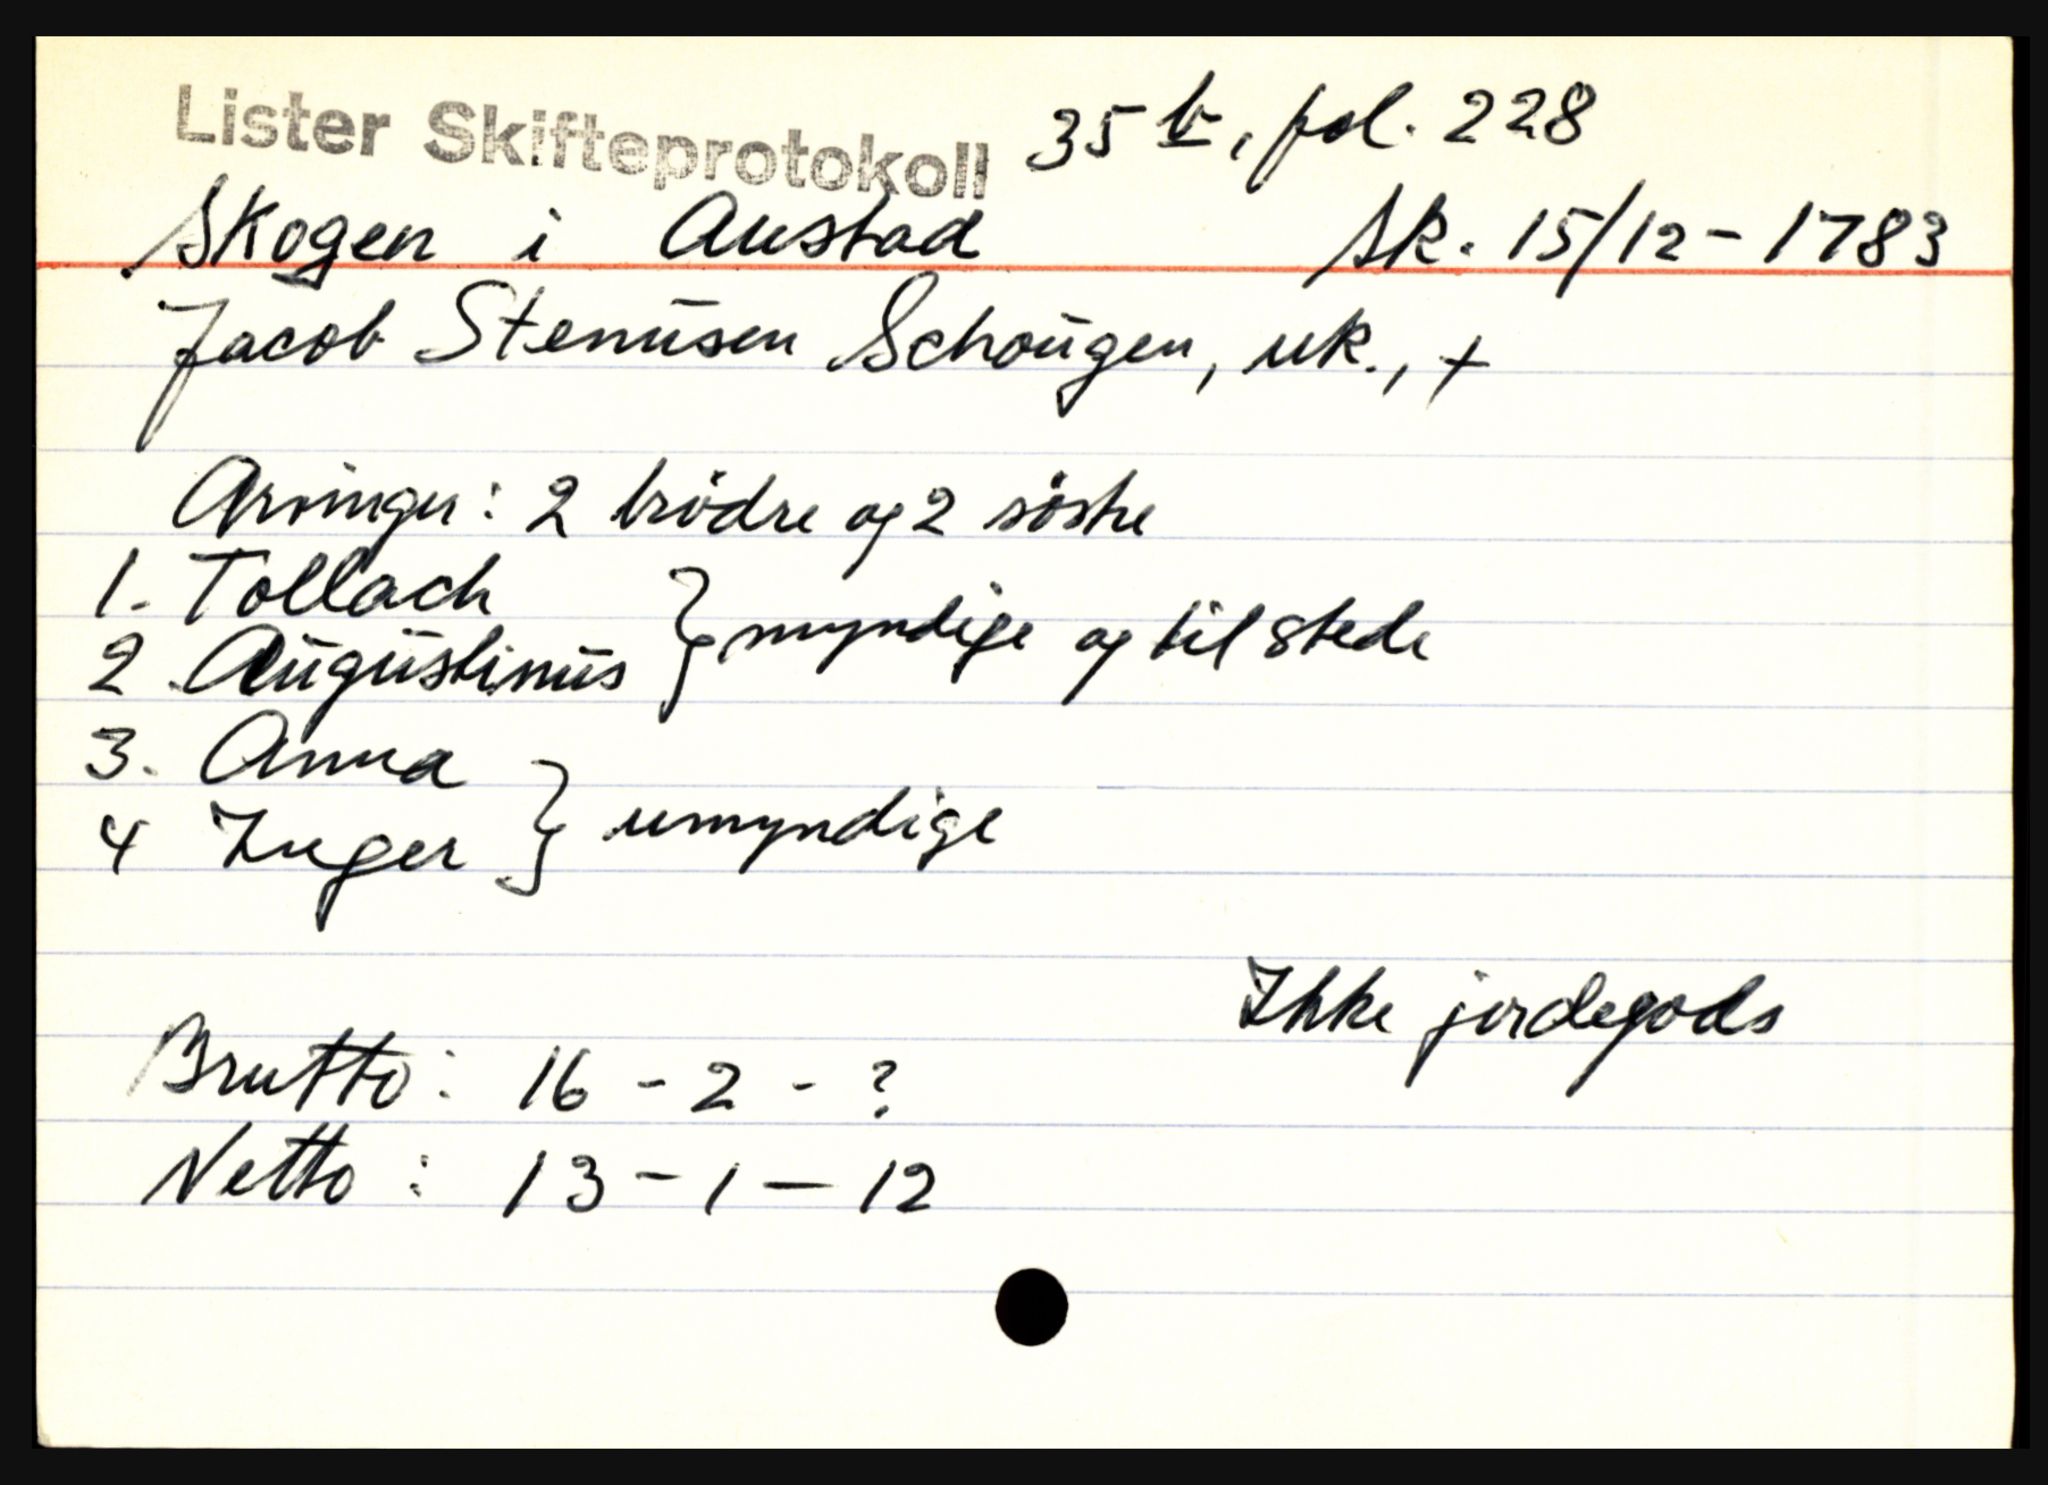 Lister Skifteprotokoll 35 b, fol. 228
Skogen i Austad sk. 15/12 - 1783
Jacob Stenüsen Schoügen, uk., +
Arvinger: 2 brödre og 2 söstre
1. Tollach
2 Aügüstinüs } myndige og til stede
3. Anna
4 Inger } umyndige
Ikke jordegods
Brutto: 16 - 2 - ?
Netto: 13 - 1 - 12